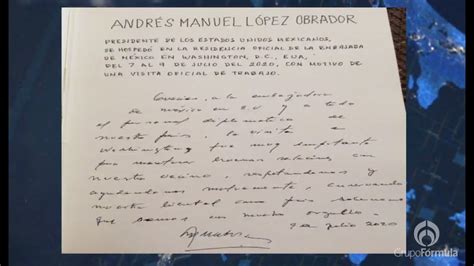 ANDRÉS MANUEL LÓPEZ OBRADOR
PRESIDENTE DE LOS ESTADOS UNIDOS MEXICANOS,
SE HOSPEDÓ EN LA RESIDENCIA OFICIAL DE LA EMBAJADA
DE MÉXICO EN WASHINGTON, D.C., EUA,
DEL 7 AL 9 DE JULIO DEL 2020, CON MOTIVO DE
UNA VISITA OFICIAL DE TRABAJO.
Gracias, a la embajadora
de México en EU y a todo
el personal diplomático de
nuestro país. la visita a
Washington fue muy importante
para mantener buenas relaciones con
nuestro vecino, respetandonos y
ayudandonos mutuamente, conservando
nuestra libertad como país soberano
que somos con mucho orgullo.
9 de julio 2020
GrupoFórmula